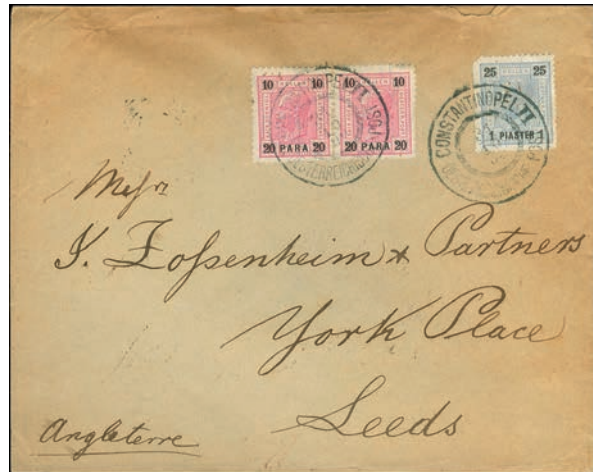 10 10 10 10
20 PARA 20 20 PARA 20
25 25
1 PIASTER 1
CONSTANTINOPEL II
Messrs
Z. Zossenheim & Partners
York Place
Leeds
Angleterre